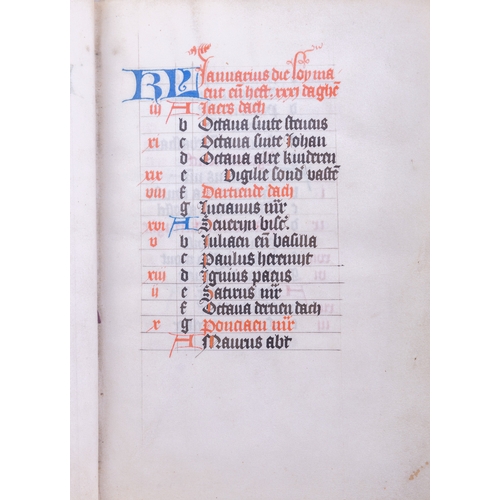 KL Januarius die loỹ ma
ent eñ heft. xxxi daghẽ
iii A Jaers dach
b Octava sinte stevens
xi c Octava sinte Johan
d Octava alre kinderen
xix e Vigilie sond᷒ vastẽ
viii f Dartiende dach
g Lucianus m̃r
xvi A Severyn bisc̃
v b Juliaen eñ basilla
c Paulus heremijt
xiii d Iginius paeus
ii e Satirus m̃r
f Octava dertien dach
x g Ponciaen m̃r
A Maurus abt